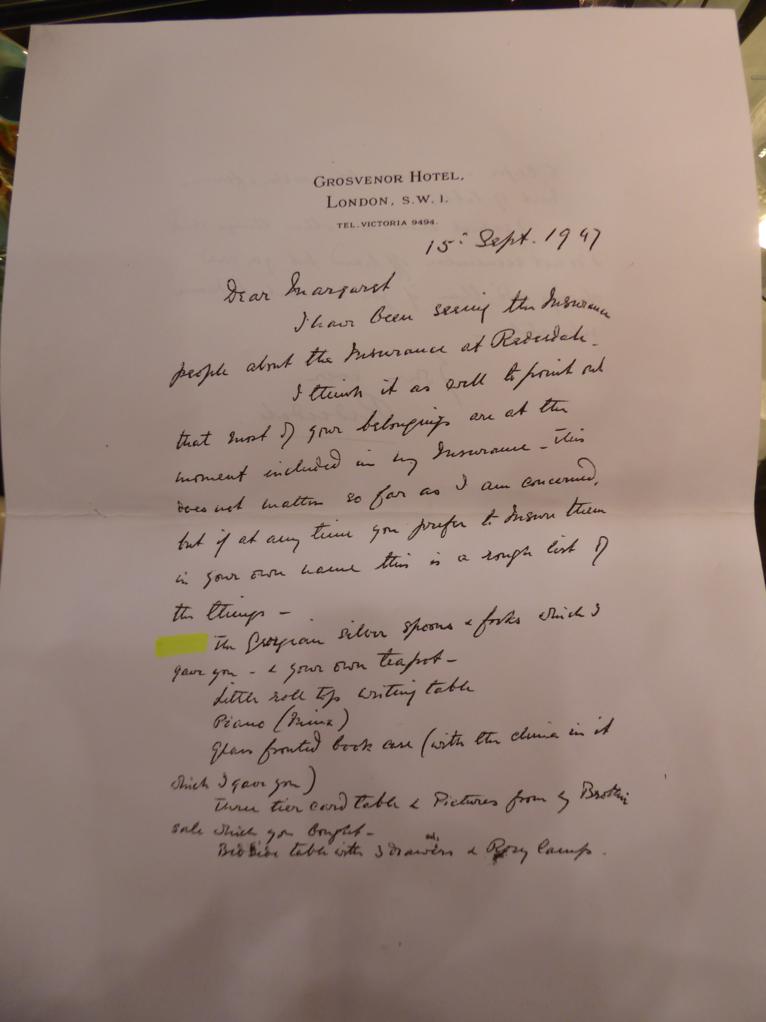 GROSVENOR HOTEL,
LONDON, S.W. 1.
TEL. VICTORIA 9494.
15: Sept. 1947
Dear Margaret
I have been seeing the Insurance
people about the Insurance at Redesdale.
I think it as well to point out
that most of your belongings are at the
moment included in my Insurance - this
does not matter so far as I am concerned,
but if at any time you prefer to Insure them
in your own name this is a rough list of
the things -
The Georgian silver spoons & forks which I
gave you - & your own teapot -
Little roll top writing table
Piano
Glass fronted book case (with the china in it
which I gave you)
Three tier card table & Pictures from my Brother
sale which you bought -
table with 3 drawers & Lamp.